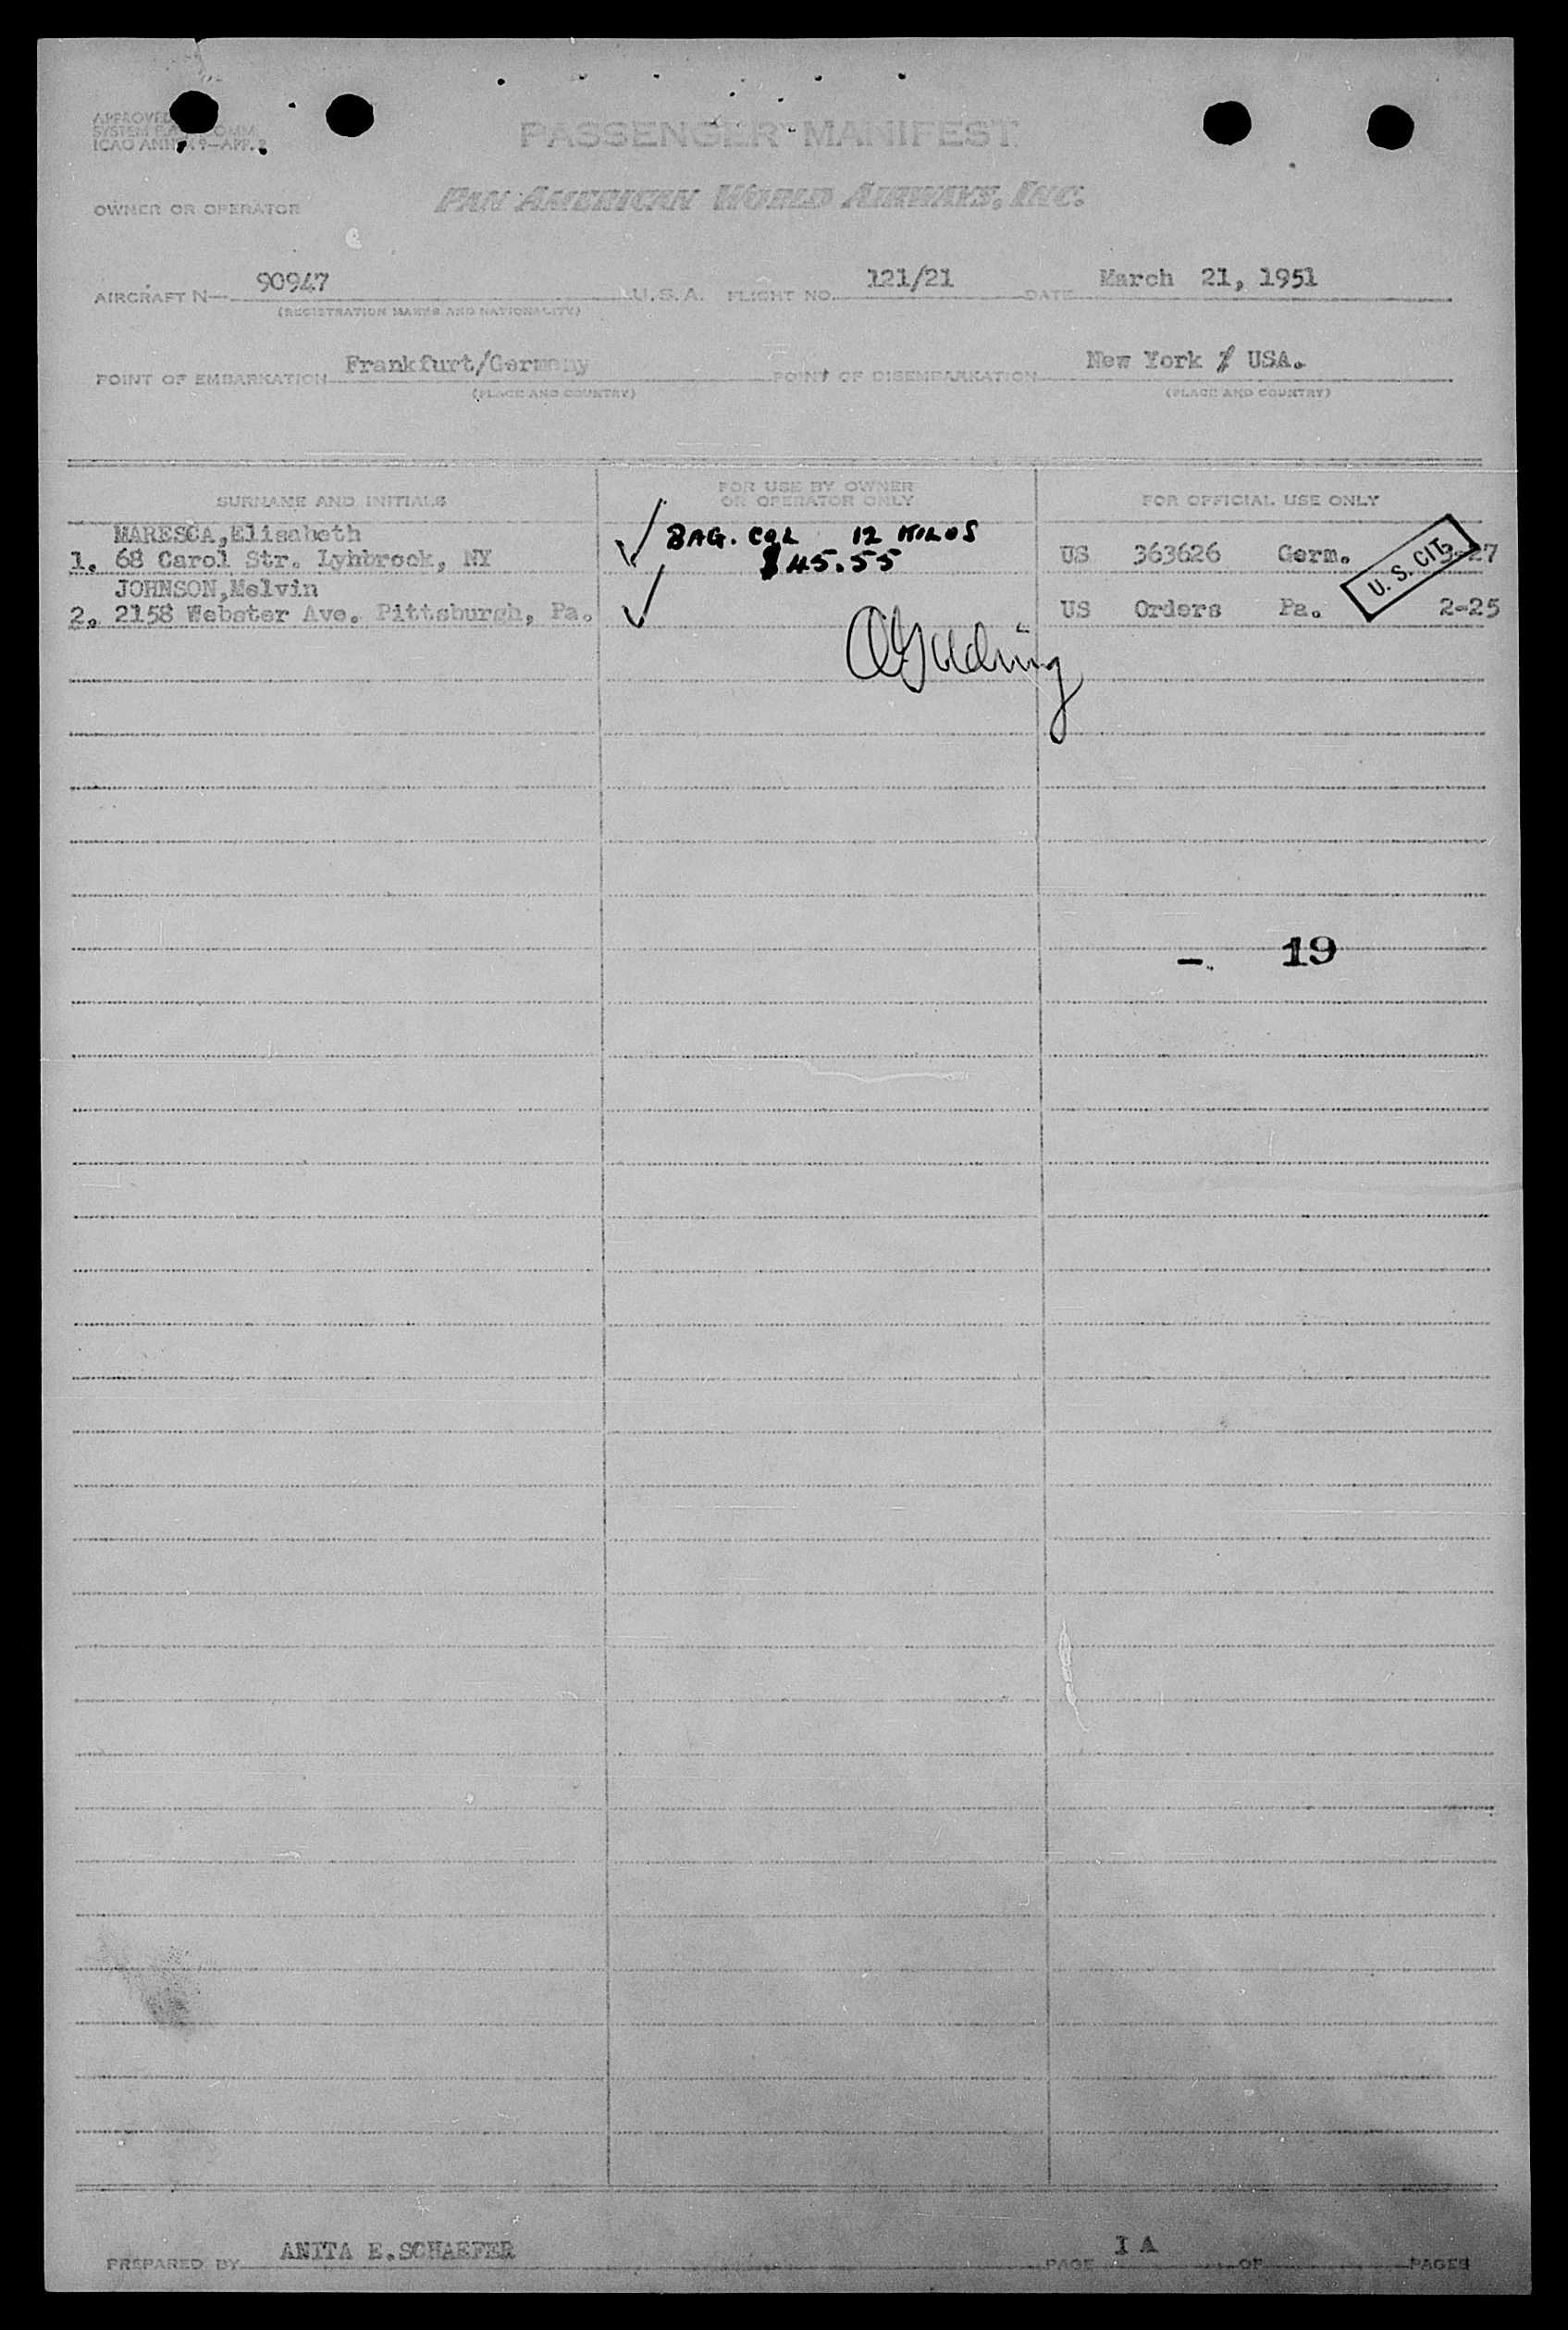 APPROVED
SYSTEM COMM.
ICAO ANNEX 9—APP. 2
PASSENGER MANIFEST
OWNER OR OPERATOR PAN AMERICAN WORLD AIRWAYS, INC.
AIRCRAFT N— 90947 U. S. A. FLIGHT NO. 121/21 DATE March 21, 1951
(REGISTRATION MARKS AND NATIONALITY)
POINT OF EMBARKATION Frankfurt/Germany POINT OF DISEMBARKATION New York / USA.
(PLACE AND COUNTRY) (PLACE AND COUNTRY)
SURNAME AND INITIALS FOR USE BY OWNER OR OPERATOR ONLY FOR OFFICIAL USE ONLY
MARESCA,Elisabeth ✓ BAG. COL 12 KILOS
1. 68 Carol Str. Lynbrook, NY $45.55 US 363626 Germ. -27
U. S. CIT.
JOHNSON,Melvin
2. 2158 Webster Ave. Pittsburgh, Pa. ✓ US Orders Pa. 2-25
- 19
PREPARED BY ANITA E.SCHAEFER PAGE I A OF PAGES